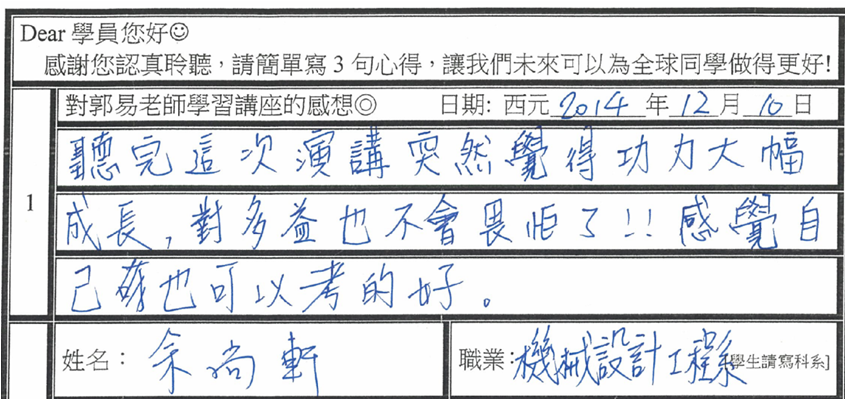 Dear 學員您好☺
感謝您認真聆聽，請簡單寫 3 句心得，讓我們未來可以為全球同學做得更好!
1
對郭易老師學習講座的感想◎ 日期: 西元 2014 年 12 月 10 日
聽完這次演講突然覺得功力大幅
成長，對多益也不會畏怕了!! 感覺自
己也可以考的好。
姓名： 余尚軒 職業: 機械設計工程系 學生請寫科系]